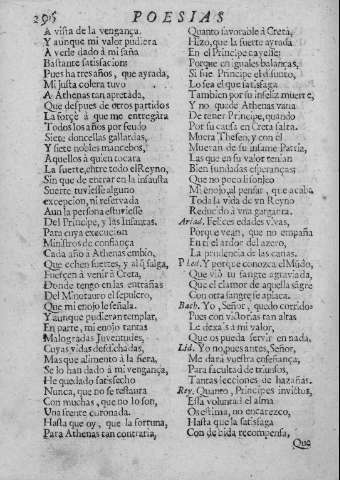 296 POESIAS
A vista de la vengança.
Y aunque mi valor pudiera
A verle dado à mi saña
Bastante satisfacion:
Pues ha tres años, que ayrada,
Mi justa colera tuvo
A Athenas tan apretada,
Que despues de otros partidos
La forçè à que me entregàra
Todos los años por feudo
Siete doncellas gallardas,
Y siete nobles mancebos,
Aquellos à quien tocara
La suerte, entre todo el Reyno,
Sin que de entrar en la infausta
Suerte tuviesse alguno
excepcion, ni reservada
Aun la persona estuviesse
Del Principe, y las Infantas.
Para cuya execucion
Ministros de confiança
Cada año à Athenas embio,
Que echen suertes, y al q̃ salga,
Fuercen à venir à Creta,
Donde tengo en las entrañas
Del Minotauro el sepulcro,
Que mi enojo le señala.
Y aunque pudieran templar,
En parte, mi enojo tantas
Malogradas Juventudes,
Cuyas vidas desdichadas,
Mas que alimento à la fiera,
Se lo han dado à mi vengança,
He quedado satisfecho
Nunca, que no se restaura
Con muchas, que no lo son,
Una frente coronada.
Hasta que oy, que la fortuna,
Para Athenas tan contraria,
Quanto favorable à Creta,
Hizo, que la suerte ayrada
En el Principe cayesse;
Porque en iguales balanças,
Si fue Principe el difunto,
Lo sea el que satisfaga
Tambien por su infeliz muerte,
Y no quede Athenas vana
De tener Principe, quando
Por su causa en Creta falta.
Muera Theseo, y con èl
Mueran de su infame Patria,
Las que en su valor tenian
Bien fundadas esperanças;
Que no poco lisonjeo
Mi enojo, al pensar, que acaba
Toda la vida de un Reyno
Reducido à una garganta.
Ariad. Felices edades vivas,
Porque vean, que no empaña
En ti el ardor del azero,
La prudencia de las canas.
Fed. Y porque conozca el Mũdo,
Que viò tu sangre agraviada,
Que el clamor de aquella sãgre
Con otra sangre se aplaca.
Bach. Yo, Señor, quedo corrido
Pues con victorias tan altas
Le dexais à mi valor,
Que os pueda servir en nada.
Lid. Yo no, pues antes, Señor,
Me darà vuestra enseñança,
Para facultad de triunfos,
Tantas lecciones de hazañas.
Rey. Quanto, Principes invictos,
Essa voluntad el alma
Os estima, no encarezco,
Hasta que la satisfaga
Con debida recompensa,
Que